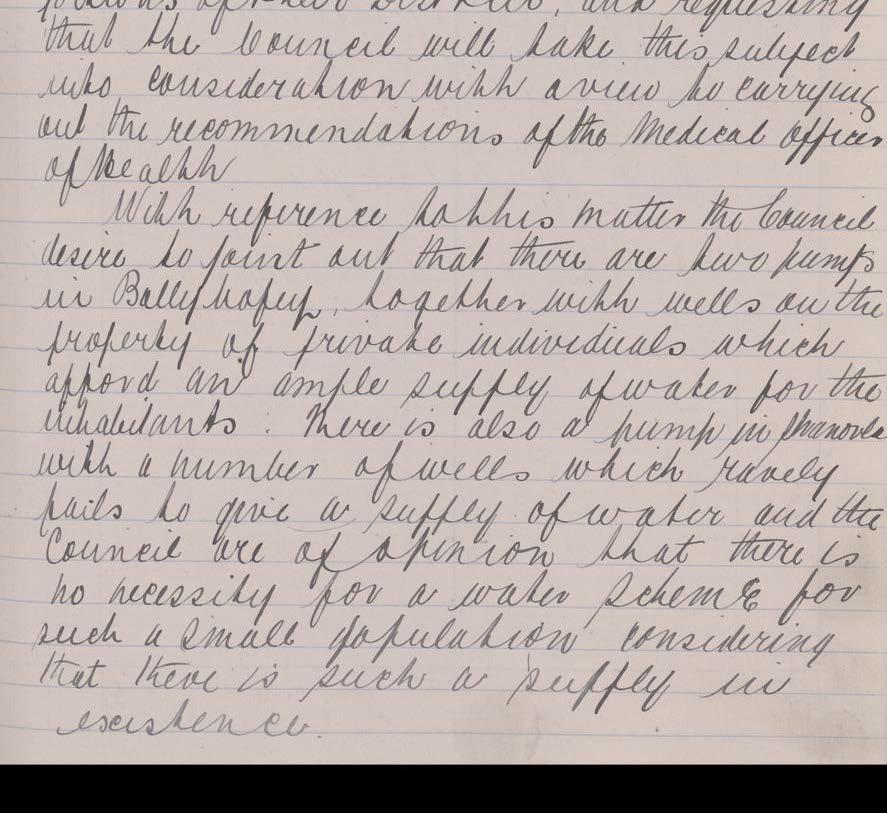 of their District, and requesting
that the Council will take this subject
into consideration with a view to carrying
out the recommendations of the Medical Officer
of Health
With reference to this matter the Council
desire to point out that there are two pumps
in Ballybofey, together with wells on the
property of private individuals which
afford an ample supply of water for the
inhabitants : There is also a pump in
with a number of wells which rarely
fails to give a supply of water and the
Council are of opinion that there is
no necessity for a water scheme for
such a small population considering
that there is such a supply in
existence.